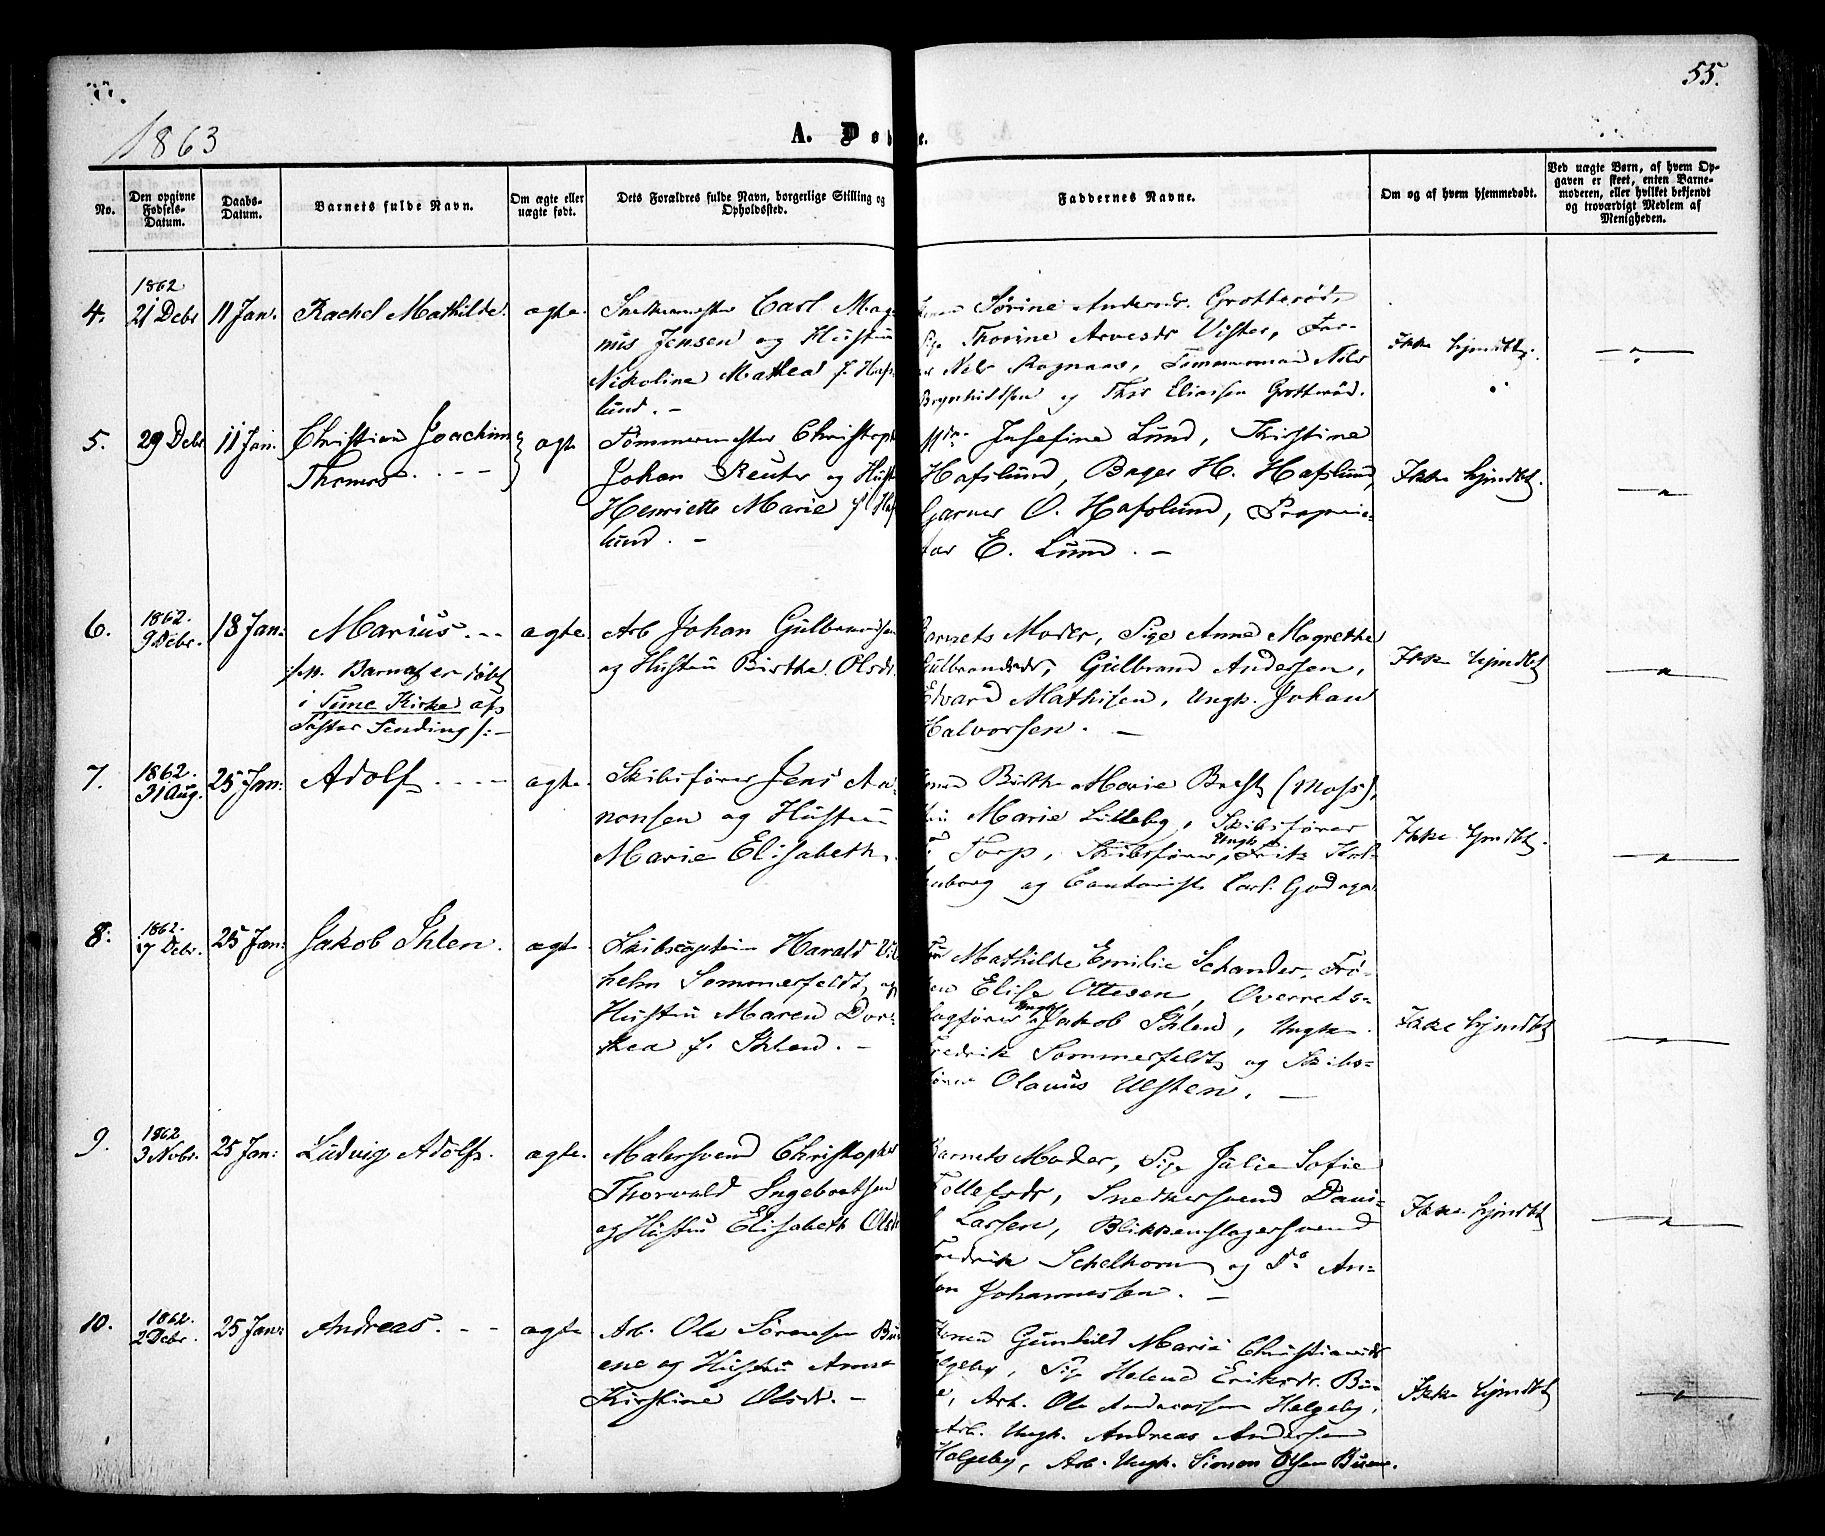 55.
1863
A. Døbte.
No.
Den opgivne Fødsels-Datum.
Daabs-Datum.
Barnets fulde Navn.
Om ægte eller uægte født.
Dets Forældres fulde Navn, borgerlige Stilling og Opholdssted.
Faddernes Navne.
Om og af hvem hjemmedøbt.
Ved uægte Børn, af hvem Opgaven er skeet, enten Barnemoderen, eller hvilket bekjendt og troværdigt Medlem af Menigheden.
4.
1862
21 Debr
11 Jan.
Rachel Mathilde.
ægte.
Snedkermester Carl Mag
nus Jensen og Hustru
Nikoline Mathea f. Haf
lund. -
Sørine Andersdr. Grotterød,
Thorine Arvesdr Vister,
Nels Rognaas, Tømmermand Nels
Brynhildsen og Thor Eliassen Grotterød.
Ikke hjmdbt.
5.
29 Debr
11 Jan.
Christian Joachim
Thomas. - - -
ægte
Tømmermester Christoph
Johan Reuter og Hust
Henriette Marie f. Haf
lund. -
Josefine Lund, Kristine
Hafslund, Bager H. Hafslund,
Garver O. Hafslund, Proprie=
tær E. Lund. -
Ikke hjmdbt.
6.
1862.
9 Debr.
18 Jan:
Marius. - -
/: N. Barnet er døbt
i Tune Kirke af
Pastor Sending :/ -
ægte.
Arb Johan Gulbrandsen
og Hustru Birthe Olsdr
Barnets Moder, Pige Anne Magrethe
Gulbrandsdr, Gulbrand Andersen,
Edvard Mathisen, Ungk. Johan
Halvorsen. -
Ikke hjmdbt
7.
1862.
31 Aug.
25 Jan:
Adolf - - -
ægte.
Skibsfører Jens Aa=
nonsen og Hustru
Marie Elisabeth.
Birthe Marie Brest (Moss),
Marie Lilleby, Skibsfører
Torp, Skibsfører, Ungk Fritz
borg og Cantorist Carl
Ikke hjmdbt.
8.
1862.
17 Debr.
25 Jan:
Jakob Ihlen.
ægte.
Skibscaptein Harald Vil
helm Sommerfeldt og
Hustru Maren Dor=
thea f. Ihlen. -
Mathilde Emilie Schander, Frø=
ken Elise Ottesen, Overrets=
sagfører Ungk Jakob Ihlen, Ungk.
Fredrik Sommerfeldt og Skibs=
fører Olavus Ulsten. -
Ikke hjmdbt
9.
1862
3 Nobr.
25 Jan:
Ludvig Adolf.
ægte.
Malersvend Christopher
Thorvald Ingebretsen
og Hustru Elisabeth Olsdr
Barnets Moder, Pige Julie Sofie
Tollefsdr, Snedkersvend Dani=
el Larsen, Blikkenslagersvend
Fredrik Schelhorn og Do An=
ton Johannessen. -
Ikke hjmdbt
10.
1862.
2 Debr.
25 Jan:
Andreas. - -
ægte
Arb. Ole Sørensen Bu
ene og Hustru Anne
Kirstine Olsdr. -
Konen Gunhild Marie Christiansdr
Helgeby, Pige Helene Eriksdr. Bu=
e, Arb. Ole Andreassen Helgeby,
Arb. Ungk. Andreas Andersen
Helgeby, Arb. Ungk. Simon Olsen Buene.
Ikke hjmdbt